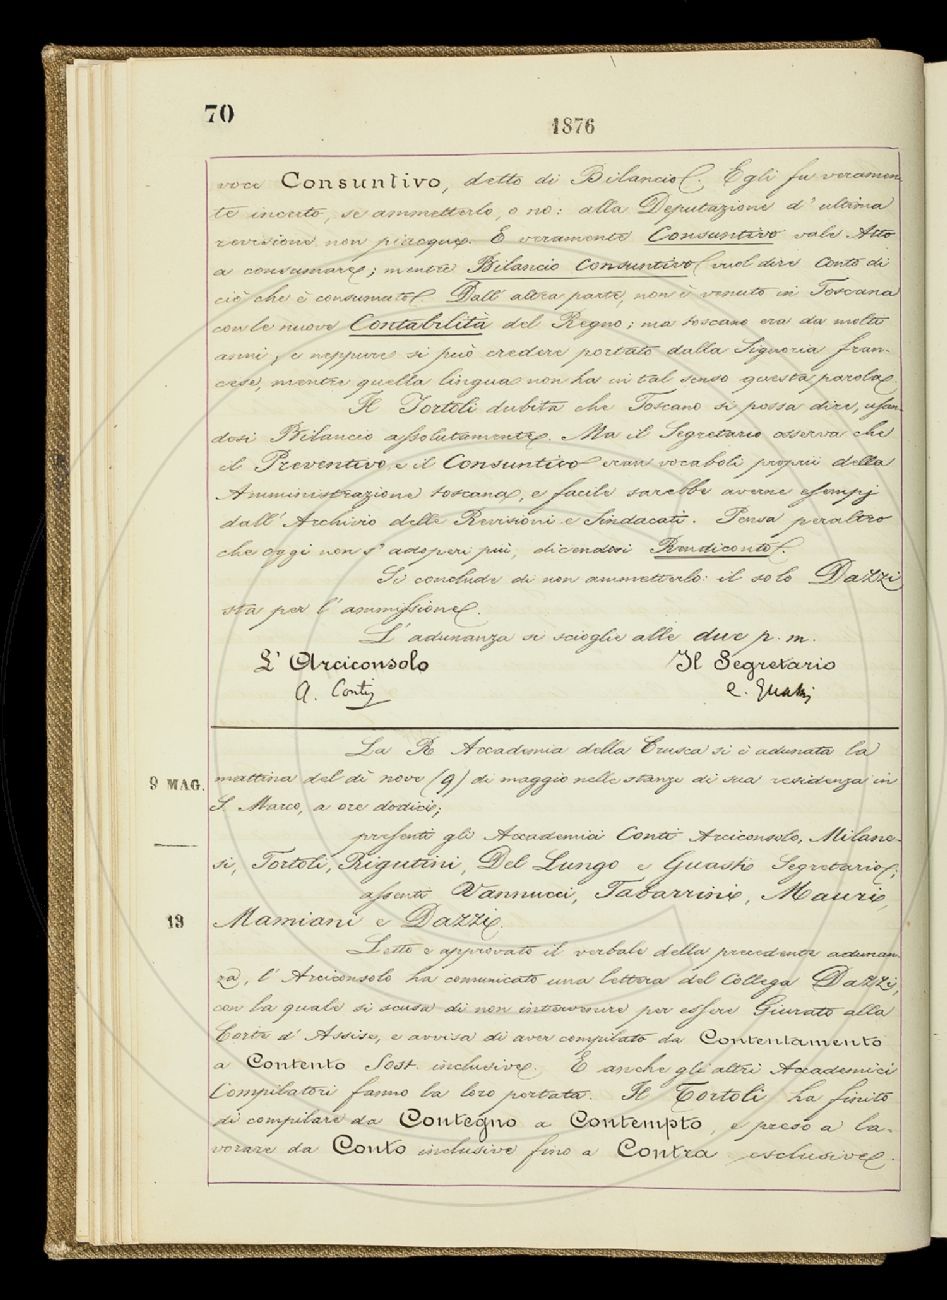 70
1876
voce Consuntivo, detto di Bilancio. Egli fu veramen-
te incerto, se ammetterlo, o no: alla Deputazione d'ultima
revisione non piacque. E veramente Consuntivo vale Atto
a consumare; mentre Bilancio consuntivo vuol dire Conto di
ciò che è consumato. Dall'altra parte, non è venuto in Toscana
con le nuove Contabilità del Regno; ma toscano era da molti
anni, e neppure si può credere portato dalla Signoria fran-
cese, mentre quella lingua non ha in tal senso questa parola.
Il Tortoli dubita che Toscano si possa dire, usan-
dosi Bilancio assolutamente. Ma il Segretario osserva che
il Preventivo e il Consuntivo eran vocaboli proprii della
Amministrazione toscana, e facile sarebbe averne esempj
dall'Archivio delle Revisioni e Sindacati. Pensa peraltro
che oggi non s'adoperi più, dicendosi Rendiconto.
Si conclude di non ammetterlo: il solo Dazzi
sta per l'ammissione.
L'adunanza si scioglie alle due p. m.
L'Arciconsolo
Il Segretario
A. Conti
C. Guasti
La R. Accademia della Crusca si è adunata la
9 MAG.
mattina del dì nove (9) di maggio nelle stanze di sua residenza in
S. Marco, a ore dodici;
presenti gli Accademici Conti Arciconsolo, Milane-
si, Tortoli, Rigutini, Del Lungo e Guasti Segretario;
assenti Vannucci, Tabarrini, Mauri,
13
Mamiani e Dazzi.
Letto e approvato il verbale della precedente adunan-
za, l'Arciconsolo ha comunicato una lettera del Collega Dazzi,
con la quale si scusa di non intervenire per essere Giurato alla
Corte d'Assise, e avvisa di aver compilato da Contentamento
a Contento Sost. inclusive. E anche gli altri Accademici
Compilatori fanno la loro portata. Il Tortoli ha finito
di compilare da Contegno a Contempto, e preso a la-
vorare da Conto inclusive fino a Contra esclusive.